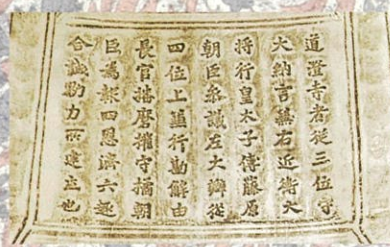 道澄寺者從三位守
大納言兼右近衛大
将行皇太子傅藤原
朝臣叅議左大辨從
四位上兼行勘解由
長官播磨權守橘朝
臣為報四恩濟六趣
合誠勠力所建立也